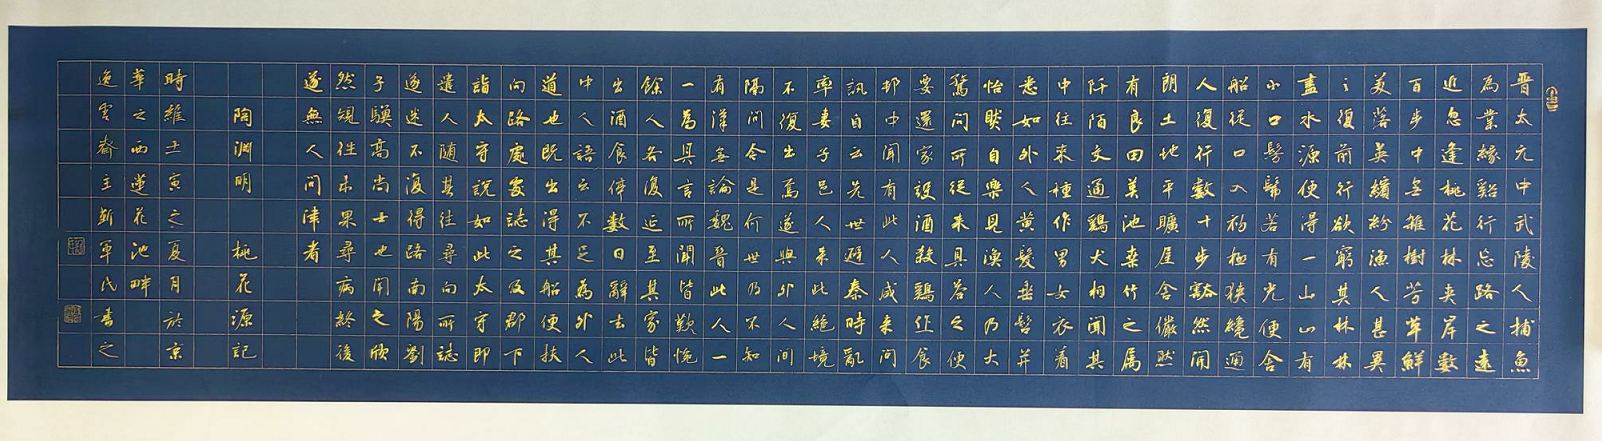 晋太元中武陵人捕魚
為業緣谿行忘路之遠
近忽逢桃花林夹岸數
百步中無雜樹芳草鮮
美落英繽紛漁人甚異
之復前行欲窮其林林
盡水源便得一山山有
小口髣髴若有光便舍
船從口入初極狹纔通
人復行數十步豁然開
朗土地平曠屋舍儼然
有良田美池桑竹之属
阡陌交通鷄犬相聞其
中往来種作男女衣着
悉如外人黄髮垂髫并
怡然自樂見漁人乃大
驚問所從来具答之便
要還家設酒殺鷄作食
邨中聞有此人咸来問
訊自云先世避秦時亂
率妻子邑人来此絶境
不復出焉遂與外人間
隔問今是何世乃不知
有漢無論魏晉此人一
一為具言所聞皆歎惋
餘人各復延至其家皆
出酒食停數日辭去此
中人語云不足為外人
道也既出得其船便扶
向路處處誌之及郡下
詣太守說如此太守即
遣人隨其往尋向所誌
遂迷不復得路南陽劉
子驥高尚士也聞之欣
然規往未果尋病終後
遂無人問津者
陶淵明 桃花源記
時維壬寅之夏月於京
華之西蓮花池畔
逸雲齋主靳軍氏書之